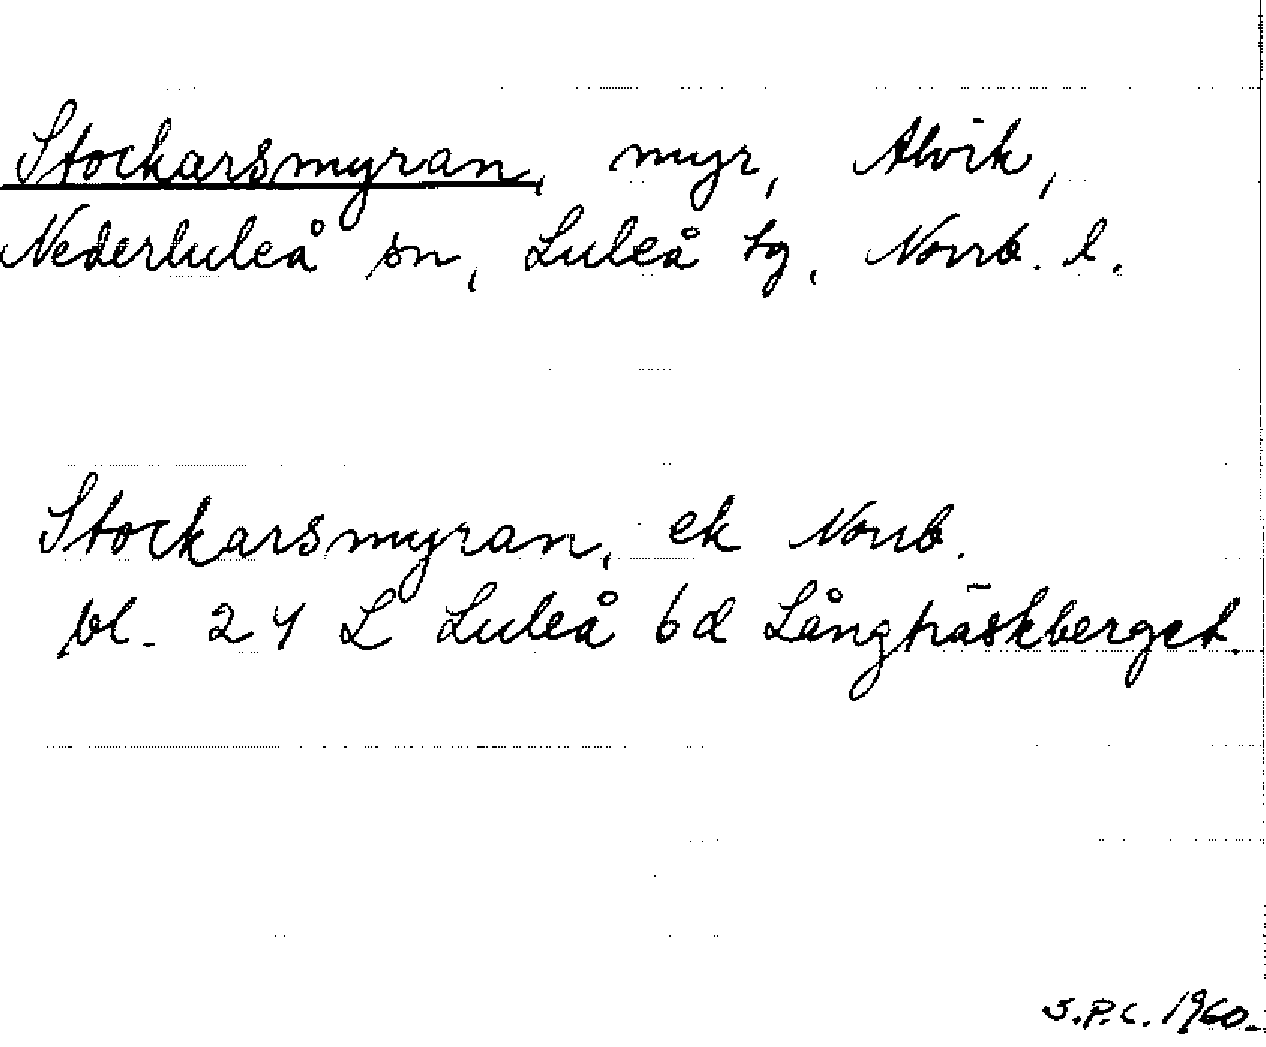 Stockarsmyran, myr, Alvik,
Nederluleå sn, Luleå tg, Norrb. l.
Stockarsmyran, ek Norrb.
bl. 24 L Luleå 6d Långträskberget.
S.P.C. 1960.